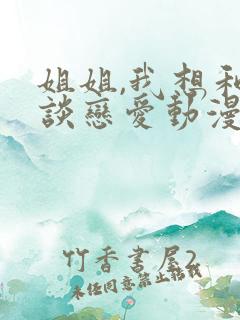 姐姐,我想和
談戀愛動漫
竹香書屋2
未經同意禁止轉載